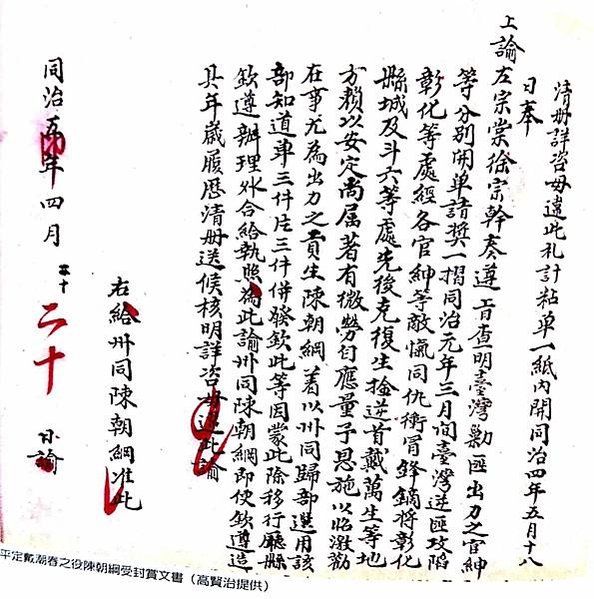 清册詳咨毋違此札計粘单一紙内開同治四年五月十八
日奉
上諭左宗棠徐宗幹奏遵旨查明臺灣勦匪出力之官紳
等分别開单請奬一摺同治元年三月间臺灣逆匪攻陷
彰化等處經各官紳等敵愾同仇衝冒鋒鏑将彰化
縣城及斗六等處先後克復生擒逆首戴萬生等地
方賴以安定尚属著有微勞自應量予恩施以昭激勸
在事尤為出力之貢生陳朝綱着以州同歸部選用該
部知道单三件片三件併發欽此等因蒙此除移行廳縣
欽遵辦理外合給執照為此諭州同陳朝綱即便欽遵造
具年歲履歷清册送候核明詳咨毋違此諭
右給州同陳朝綱准此
同治五年四月 二十 日諭
平定戴潮春之役陳朝綱受封賞文書（高賢治提供）